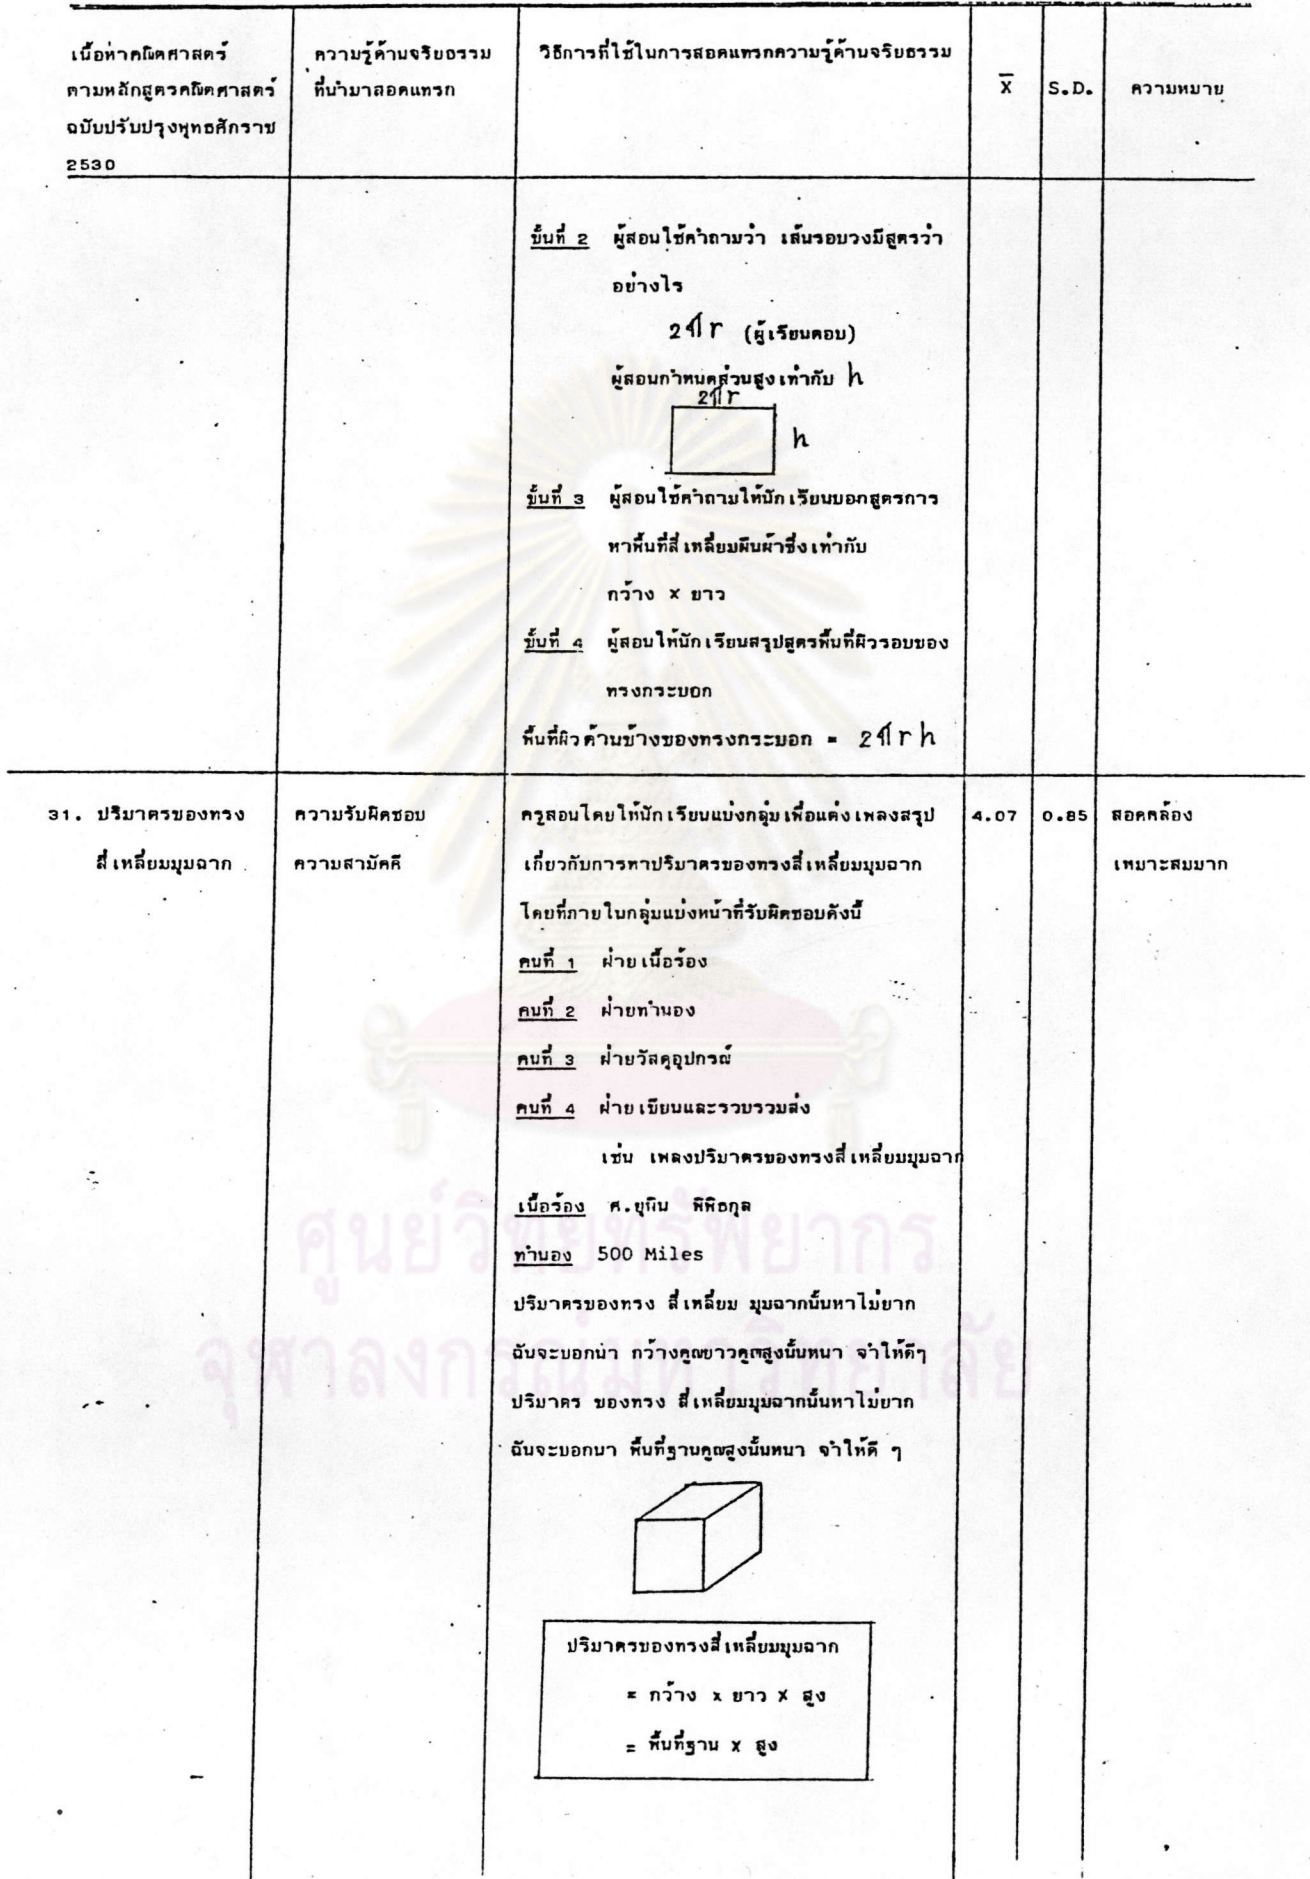 เนื้อหาคณิตศาสตร์
ตามหลักสูตรคณิตศาสตร์
ฉบับปรับปรุงพุทธศักราช
2530
ความรู้ด้านจริยธรรม
ที่นำมาสอดแทรก
วิธีการที่ใช้ในการสอดแทรกความรู้ด้านจริยธรรม
X̄
S.D.
ความหมาย
ขั้นที่ 2 ผู้สอนใช้คำถามว่า เส้นรอบวงมีสูตรว่า
อย่างไร
2πr (ผู้เรียนตอบ)
ผู้สอนกำหนดส่วนสูงเท่ากับ h
2πr
h
ขั้นที่ 3 ผู้สอนใช้คำถามให้นักเรียนบอกสูตรการ
หาพื้นที่สี่เหลี่ยมผืนผ้าซึ่งเท่ากับ
กว้าง × ยาว
ขั้นที่ 4 ผู้สอนให้นักเรียนสรุปสูตรพื้นที่ผิวรอบของ
ทรงกระบอก
พื้นที่ผิวด้านข้างของทรงกระบอก = 2πrh
31. ปริมาตรของทรง
สี่เหลี่ยมมุมฉาก
ความรับผิดชอบ
ความสามัคคี
ครูสอนโดยให้นักเรียนแบ่งกลุ่มเพื่อแต่งเพลงสรุป
เกี่ยวกับการหาปริมาตรของทรงสี่เหลี่ยมมุมฉาก
โดยที่ภายในกลุ่มแบ่งหน้าที่รับผิดชอบดังนี้
คนที่ 1 ฝ่ายเนื้อร้อง
คนที่ 2 ฝ่ายทำนอง
คนที่ 3 ฝ่ายวัสดุอุปกรณ์
คนที่ 4 ฝ่ายเขียนและรวบรวมส่ง
เช่น เพลงปริมาตรของทรงสี่เหลี่ยมมุมฉาก
เนื้อร้อง ศ.ยุพิน พิพิธกุล
ทำนอง 500 Miles
ปริมาตรของทรง สี่เหลี่ยม มุมฉากนั้นหาไม่ยาก
ฉันจะบอกน่า กว้างคูณยาวคูณสูงนั้นหนา จำให้ดีๆ
ปริมาตร ของทรง สี่เหลี่ยมมุมฉากนั้นหาไม่ยาก
ฉันจะบอกนา พื้นที่ฐานคูณสูงนั้นหนา จำให้ดี ๆ
ปริมาตรของทรงสี่เหลี่ยมมุมฉาก
= กว้าง x ยาว x สูง
= พื้นที่ฐาน x สูง
4.07
0.85
สอดคล้อง
เหมาะสมมาก
ศูนย์วิทยทรัพยากร
จุฬาลงกรณ์มหาวิทยาลัย